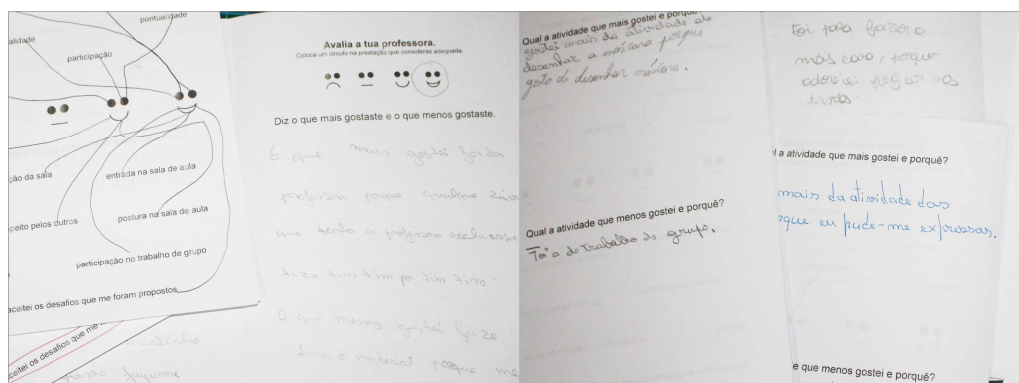 pontualidade
alidade
participação
ção da sala
entrada na sala de aula
eito pelos outros
postura na sala de aula
participação no trabalho de grupo
aceitei os desafios que me foram propostos
aceitei os desafios que me
sozinho
passo
Avalia a tua professora.
Coloca um círculo na prestação que consideras adequada.
Diz o que mais gostaste e o que menos gostaste.
O que mais gostei foi da
porque qualquer
que tenha a professora
tudo tim tim por tim tim.
O que menos gostei foi
o material porque me
Qual a atividade que mais gostei e porquê?
gostei mais da atividade de
desenhar a máscara porque
gosto de desenhar máscara.
Qual a atividade que menos gostei e porquê?
Foi a de trabalho de grupo.
Foi para fazer a
nas
tintas.
l a atividade que mais gostei e porquê?
mais da atividade das
rque eu pude-me expressar.
e que menos gostei e porquê?